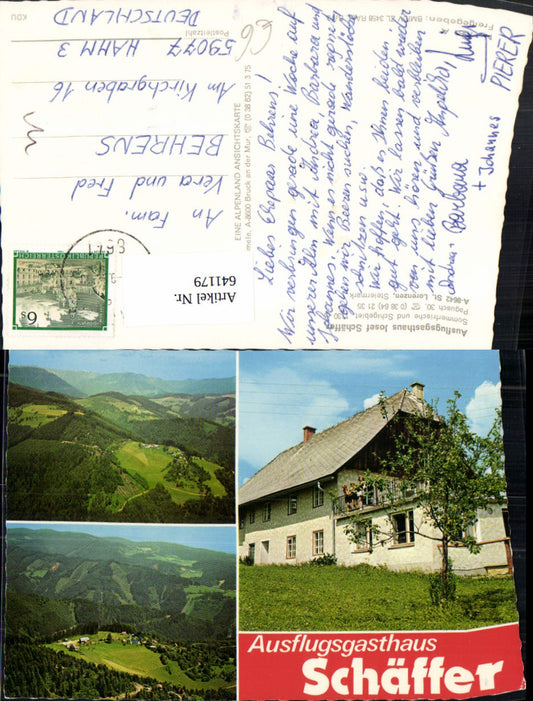 Liebes Ehepaar Behrens!
Wir verbringen gerade eine Woche auf
unserer Alm mit Andrea, Barbara und
Johannes. Wenns nicht gerade regnet
gehen wir Beeren suchen, Wandern,
schützen usw.
Wir hoffen, daß es Ihnen beiden
gut geht. Wir lassen bald wieder
von uns hören und verbleiben
mit lieben Grüßen
Andrea Barbara
+ Johannes
PIERER
EINE ALPENLAND ANSICHTSKARTE
A-8600 Bruck an der Mur, ☏ (0 38 62) 51 3 75
Ausflugsgasthaus Josef Schäffer
Sommerfrische und Schigebiet
Pogusch 30, ☏ (0 38 64) 21 35
A-8642 St. Lorenzen, Steiermark
Freigegeben: BMfLV
63
An Fam.
Vera und Fred
BEHRENS
Am Kirchgraben 16
59077 HAMM 3
Postleitzahl
DEUTSCHLAND
KDU
REPUBLIK ÖSTERREICH
6s
Artikel Nr.
641179
Ausflugsgasthaus
Schäffer